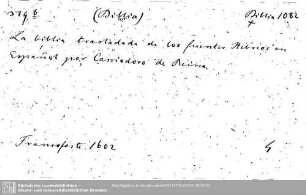 (Biblia) Biblia 1082
La biblia trasladada de los fuentes Hebreos en
Español por Cassiodoro de Reina.
Francoforte 1602 4
Sächsische Landesbibliothek -
Staats- und Universitätsbibliothek Dresden